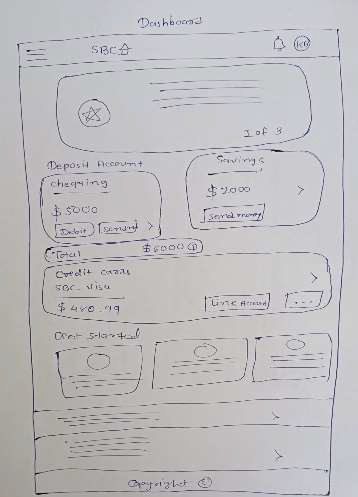 Dashboard
SBC
KR
1 of 3
Deposit Account
Chequing
$5000
Debit
Savings
$2000
Send money
Total $5000
Credit cards
SBC Visa
$420.49
Link Account ...
Get Started
Copyright ©